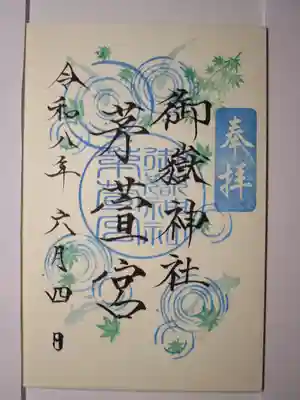 奉拝
御嶽神社
茅萱宮
令和八年 六月四日